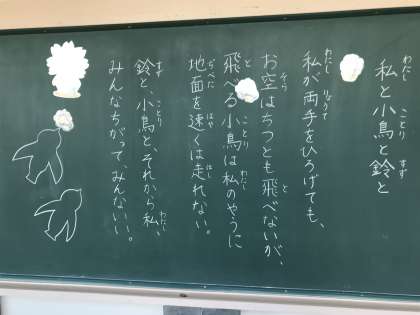 私と小鳥と鈴と
私が両手をひろげても、
お空はちっとも飛べないが、
飛べる小鳥は私のやうに
地面を速くは走れない。
鈴と、小鳥と、それから私、
みんなちがって、みんないい。